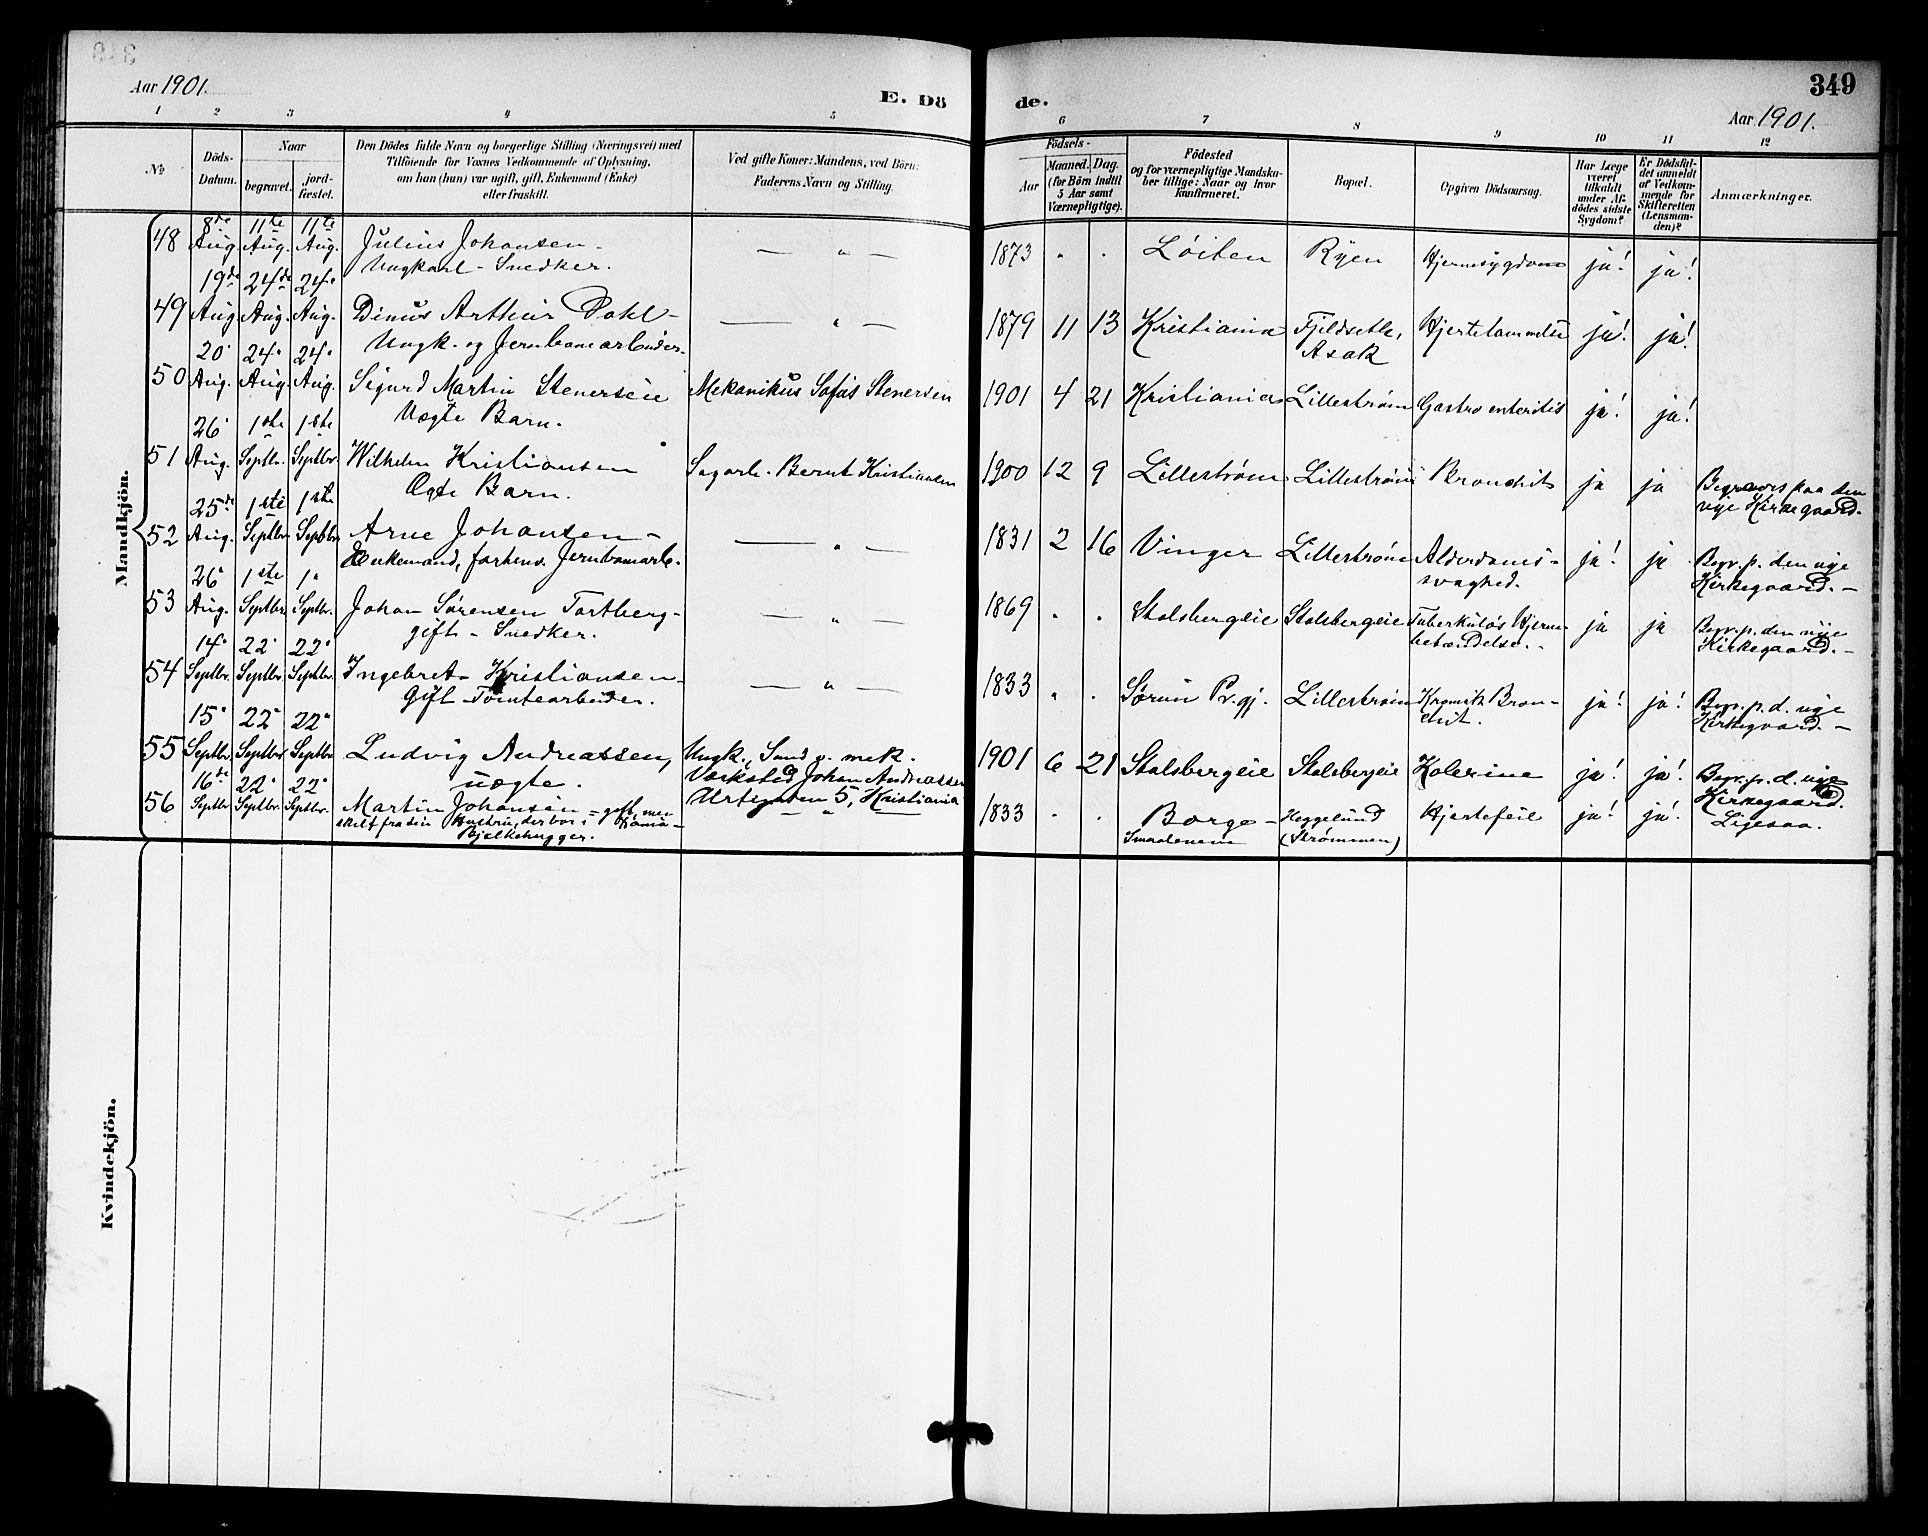 Aar 1901.
E. Dö
de.
349
Aar 1901.
1 2 3 4 5 6 7 8 9 10 11 12
No
Döds-
Datum.
Naar
begravet.
jord-
fæstet.
Den Dödes fulde Navn og borgerlige Stilling (Næringsvei) med
Tilföiende for Voxnes Vedkommende af Oplysning,
om han (hun) var ugift, gift, Enkemand (Enke)
eller fraskilt.
Ved gifte Koner: Mandens, ved Börn:
Faderens Navn og Stilling.
Födsels-
Aar
Maaned. Dag.
(for Börn indtil
5 Aar samt
Værnepligtige).
Födested
og for værnepligtige Mandska-
ber tillige: Naar og hvor
konfirmeret.
Bopæl.
Opgiven Dödsaarsag.
Har Læge
været
tilkaldt
under Af-
dödes sidste
Sygdom?
Er Dödsfal-
det anmeldt
af Vedkom-
mende for
Skifteretten
(Lensman-
den)?
Anmærkninger.
Mandkjön.
48 8de Aug. 11te Aug. 11te Aug. Julius Johansen - — „ — 1873 . . Löiten Ryen Hjernesygdom ja! ja!
Ungkarl - Snedker.
49 19de Aug 24de Aug. 24. Aug. Dinus Arthur Dahl - — „ — 1879 11 13 Kristiania Fjeldsetle, Hjertelammelse ja! ja!
Ungk. og Jernbanearbeider. Asak
50 20. Aug. 24. Aug. 24. Aug. Sigurd Martin Stenersen Mekanikus Sofus Stenersen 1901 4 21 Kristiania Lillestrøm Gastro enteritis ja! ja!
Uægte Barn.
51 26. Aug. 1ste Septbr. 1ste Septbr. Wilhelm Kristiansen Sagarb. Bernt Kristiansen 1900 12 9 Lillestrøm Lillestrøm Bronchit ja ja Begraves paa den
Ægte Barn. nye Kirkegaard.
52 25de Aug. 1ste Septbr 1ste Septbr Arne Johansen - — „ — 1831 2 16 Vinger Lillestrøm Alderdoms- ja! ja Begr. p. den nye
Enkemand, forhenv. Jernbanearb. svaghed. Kirkegaard. -
53 26. Aug. 1ste Septbr. 1. Septbr. Johan Sørensen Tortberg - — „ — 1869 . . Stalsbergeie Stalsbergeie Tuberkuløs Hjerne- ja ja Begr. p. den nye
gift - Snedker. betændelse. Kirkegaard. -
54 14. Septbr. 22. Septbr. 22. Septbr. Ingebret Kristiansen - — „ — 1833 . . Sørum Pr.gj. Lillestrøm Kronisk Bron- ja! ja! Begr. p. d. nye
Gift - Tomtearbeider. chit. Kirkegaard. -
55 15. Septbr. 22. Septbr. 22. Septbr Ludvig Andreassen, Ungk., Smed v. mek. 1901 6 21 Stalsbergeie Stalsbergeie Kolerine ja! ja! Begr. p. d. nye
uægte. Værksted Johan Andreassen Kirkegaard.
Urtegaten 5, Kristiania
56 16de Septbr 22. Septbr. 22. Septbr. Martin Johansen - gift, men — „ — 1833 . . Borge - Heggelund Hjertefeil ja! ja! Ligesaa.
skilt fra sin Hustru, der bor i Smaalenene (Strømmen)
Bjelkehugger.
Kvindekjön.